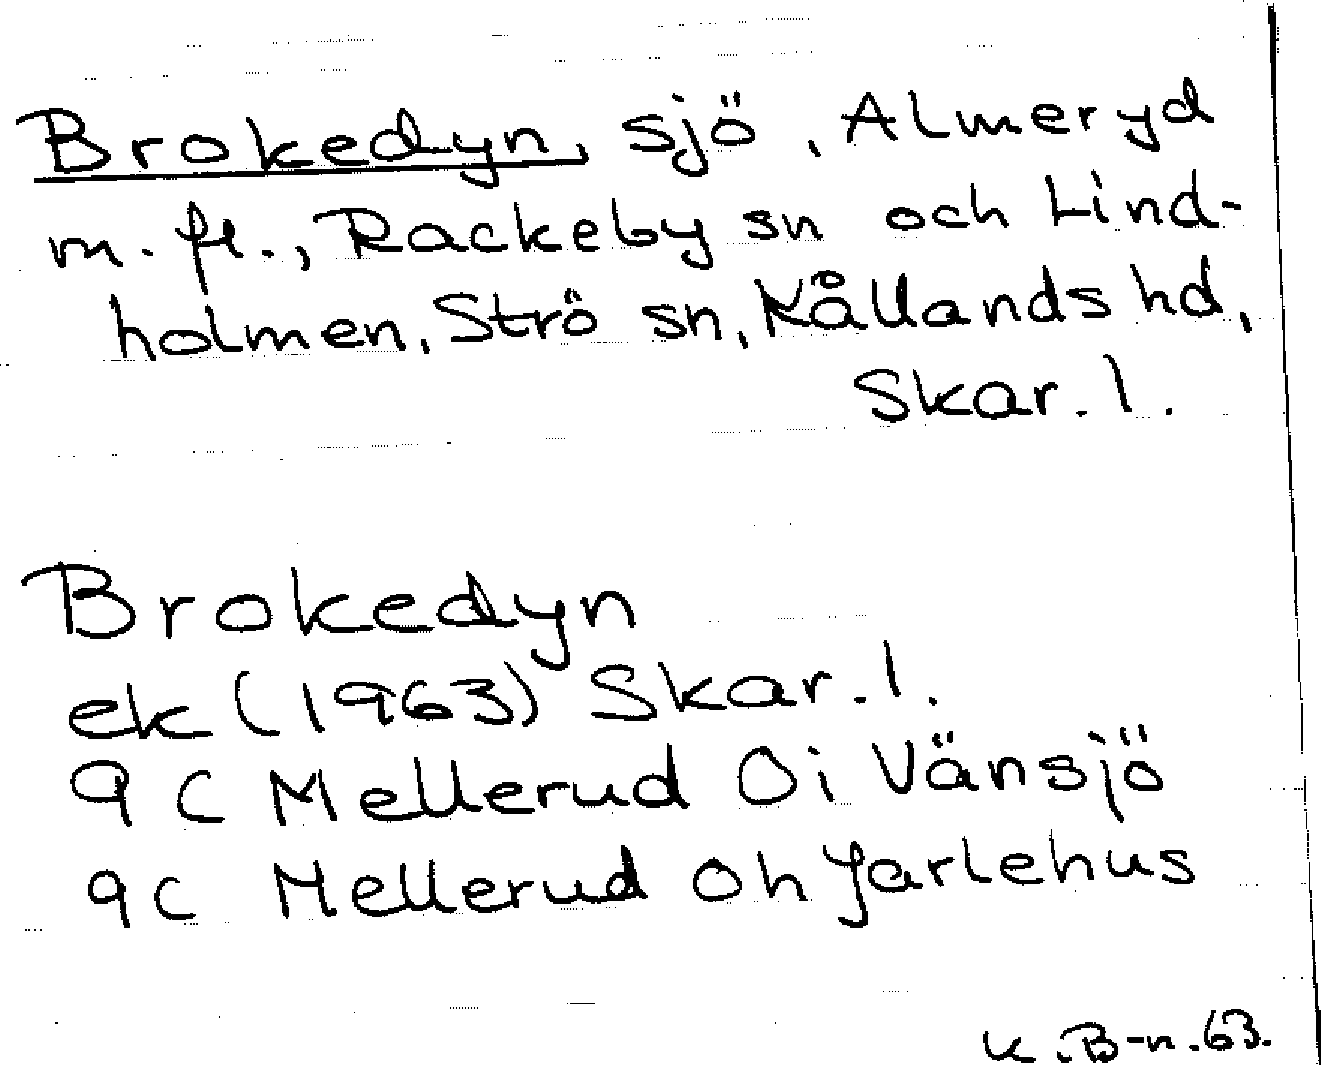 Brokedyn, sjö, Almeryd
m.fl., Rackeby sn och Lind-
holmen, Strö sn, Kållands hd,
Skar. l.
Brokedyn
ek (1963) Skar. l.
9 C Mellerud 0i Vänsjö
9C Mellerud 0h Jarlehus
K. B-n. 63.